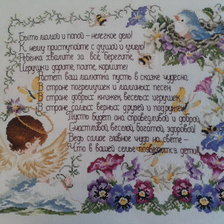 Быть мамой и папой – нелегкое дело!
К нему приступайте с душой и умело!
Ребёнка хвалите за всё, берегите,
Игрушки дарите, пойте, кормите!
Растет ваш малютка пусть в сказке чудесной,
В стране погремушек и маминых песен
В стране добрых книжек, веселых игрушек,
В стране солнца, верных друзей и подружек!
Пусть будет она справедливой и доброй,
Счастливой, веселой, богатой, здоровой!
Ведь самое главное чудо на свете –
Что в вашей семье появляются дети!